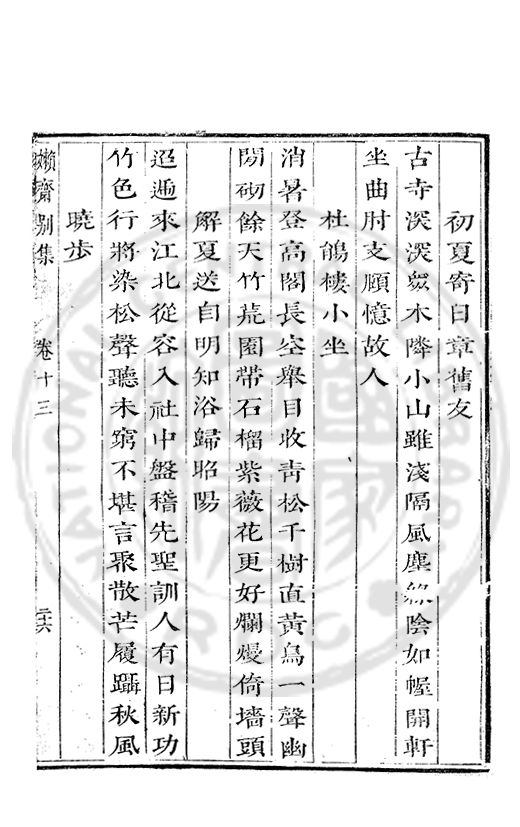 初夏寄日章舊友
古寺深深衆木隣小山雖淺隔風塵綠陰如幄開軒
坐曲肘支頤憶故人
杜鵑樓小坐
消暑登高閣長空舉目收青松千樹直黃鳥一聲幽
閉砌餘天竹荒園帶石榴紫薇花更好爛熳倚墻頭
解夏送自明知浴歸昭陽
迢遞來江北從容入社中盤稽先聖訓人有日新功
竹色行將染松聲聽未窮不堪言聚散芒履躡秋風
曉步
懶齋別集 卷十三 二六